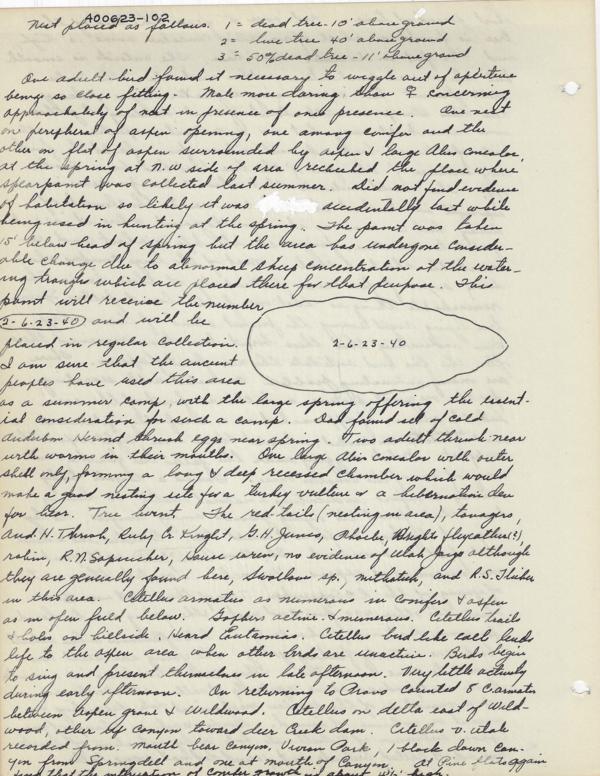 A00623-102
Nest placed as follows. 1 = dead tree - 10' above ground
2 = live tree 40' above ground
3 = 50% dead tree - 11' above ground
One adult bird found it necessary to wiggle out of apeture
being so close fitting. Male more daring than ♀ concerning
approachability of nest in presence of ones presence. One nest
on peripheral of aspen opening, one among conifer and the
other on flat of aspen surrounded by aspen & large Abies concolor.
at the spring at N.W side of area rechecked the place where
spearpoint was collected last summer. Did not find evidence
of habitation so likely it was accidentally lost while
being used in hunting at the spring. The point was taken
15' below head of spring but the area has undergone consider-
able change due to abnormal sheep concentration at the water-
ing troughs which are placed there for that purpose. This
point will receive the number
2-6-23-40 and will be
placed in regular collection.
2-6-23-40
I am sure that the ancient
peoples have used this area
as a summer camp, with the large spring offering the essent-
ial consideration for such a camp. Dad found set of cold
Audubon Hermit thrush eggs near spring. Two adult thrush near
with worms in their mouths. One large Abies concolor with outer
shell only, forming a long & deep recessed chamber which would
make a good nesting site for a turkey vulture or a hibernation den
for bear. Tree burnt. The red-tails (nesting in area), tanagers,
Aud. H. Thrush, Ruby Cr Kinglet, G.H. Junco, Phoebe, Wrights flycatcher(?),
robin, R.N. Sapsucker, House wren, no evidence of Utah Jays although
they are generally found here, Swallows sp., nuthatch, and R.S. Flicker
in this area. Citellus armatus as numerous in conifers & aspen
as in open field below. Gophers active & numerous. Citellus trails
& holes on hillside. Heard Eutamias. Citellus bird-like call lends
life to the aspen area when other birds are inactive. Birds begin
to sing and present themselves in late afternoon. Very little activity
during early afternoon. On returning to Provo counted 5 C. armatus
between Aspen grove & Wildwood. Citellus on delta east of Wild-
wood, other up Canyon toward deer Creek dam. Citellus v. utah
recorded from mouth bear Canyon, Vivian Park, 1 block down can-
yon from Springdell and one at mouth of Canyon. At Pine flats again
that the intrusion of conifer growth is about